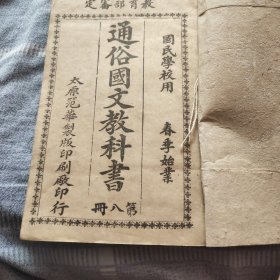 教育部審定
國民學校用
春季始業
通俗國文教科書
第八冊
太原范華製版印刷廠印行